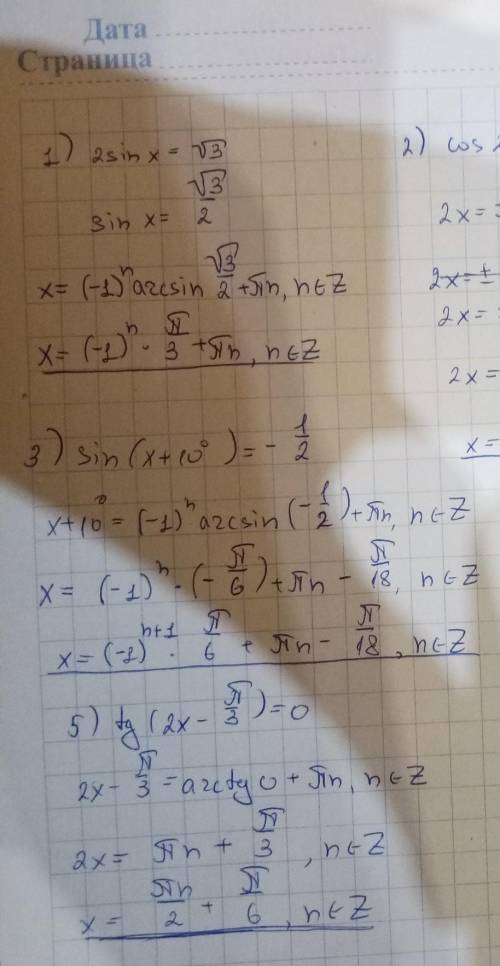 Дата
Страница
1) 2sin x = √3
sin x = √3/2
x = (-1)ⁿ arcsin √3/2 + πn, n∈Z
x = (-1)ⁿ · π/3 + πn, n∈Z
3) sin (x+10°) = - 1/2
x+10° = (-1)ⁿ arcsin (-1/2) + πn, n∈Z
x = (-1)ⁿ · (-π/6) + πn - π/18, n∈Z
x = (-1)ⁿ⁺¹ · π/6 + πn - π/18, n∈Z
5) tg (2x - π/3) = 0
2x - π/3 = arctg 0 + πn, n∈Z
2x = πn + π/3, n∈Z
x = πn/2 + π/6, n∈Z
2) cos
2x =
2x = ±
2x =
2x =
x =